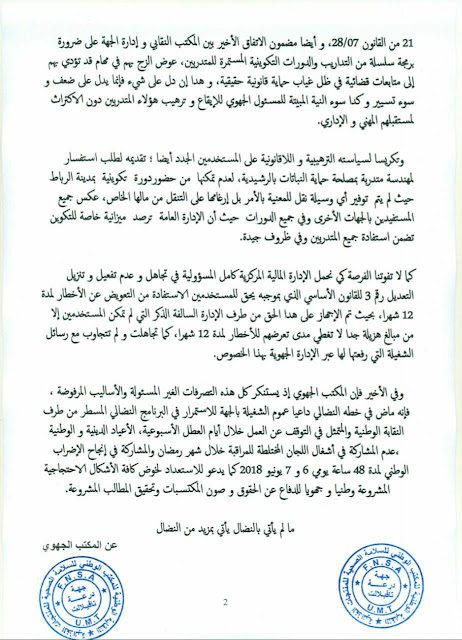 21 من القانون 28/07، و أيضا مضمون الاتفاق الأخير بين المكتب النقابي و إدارة الجهة على ضرورة
برمجة سلسلة من التداريب والدورات التكوينية المستمرة للمتدربين، عوض الزج بهم في مهام قد تؤدي بهم
إلى متابعات قضائية في ظل غياب حماية قانونية حقيقية، و هدا إن دل على شيء فإنما يدل على ضعف و
سوء تسيير و كدا سوء النية المبيتة للمسئول الجهوي للإيقاع و ترهيب هؤلاء المتدربين دون الاكتراث
لمستقبلهم المهني و الإداري.
وتكريسا لسياسته الترهيبية و اللاقانونية على المستخدمين الجدد أيضا ؛ تقديمه لطلب استفسار
لمهندسة متدربة بمصلحة حماية النباتات بالرشيدية، لعدم تمكنها من حضور دورة تكوينية بمدينة الرباط
حيث لم يتم توفير أي وسيلة نقل للمعنية بالأمر بل إرغامها على التنقل من مالها الخاص، عكس جميع
المستفيدين بالجهات الأخرى وفي جميع الدورات حيث أن الإدارة العامة ترصد ميزانية خاصة للتكوين
تضمن استفادة جميع المتدربين وفي ظروف جيدة.
كما لا تفوتنا الفرصة كي نحمل الإدارة المالية المركزية كامل المسؤولية في تجاهل و عدم تفعيل و تنزيل
التعديل رقم 3 للقانون الأساسي الذي بموجبه يحق للمستخدمين الاستفادة من التعويض عن الأخطار لمدة
12 شهرا، بحيث تم الإجهاز على هدا الحق من طرف الإدارة السالفة الذكر التي لم تمكن المستخدمين إلا
من مبالغ هزيلة جدا لا تغطي مدى تعرضهم للأخطار لمدة 12 شهرا، كما تجاهلت و لم تتجاوب مع رسائل
الشغيلة التي رفعتها لها عبر الإدارة الجهوية بهدا الخصوص.
وفي الأخير فإن المكتب الجهوي إذ يستنكر كل هذه التصرفات الغير المسئولة والأساليب المرفوضة ،
فإنه ماض في خطه النضالي داعيا عموم الشغيلة بالجهة للاستمرار في البرنامج النضالي المسطر من طرف
النقابة الوطنية والمتمثل في التوقف عن العمل خلال أيام العطل الأسبوعية، الأعياد الدينية و الوطنية
،عدم المشاركة في أشغال اللجان المختلطة للمراقبة خلال شهر رمضان والمشاركة في إنجاح الإضراب
الوطني لمدة 48 ساعة يومي 6 و 7 يونيو 2018 كما يدعو للاستعداد لخوض كافة الأشكال الاحتجاجية
المشروعة وطنيا و جهويا للدفاع عن الحقوق و صون المكتسبات وتحقيق المطالب المشروعة.
ما لم يأتي بالنضال يأتي بمزيد من النضال
عن المكتب الجهوي
F.N.S.A
جهة
درعة
تافيلالت
U.M.T
F.N.S.A
جهة
درعة
تافيلالت
U.M.T
2